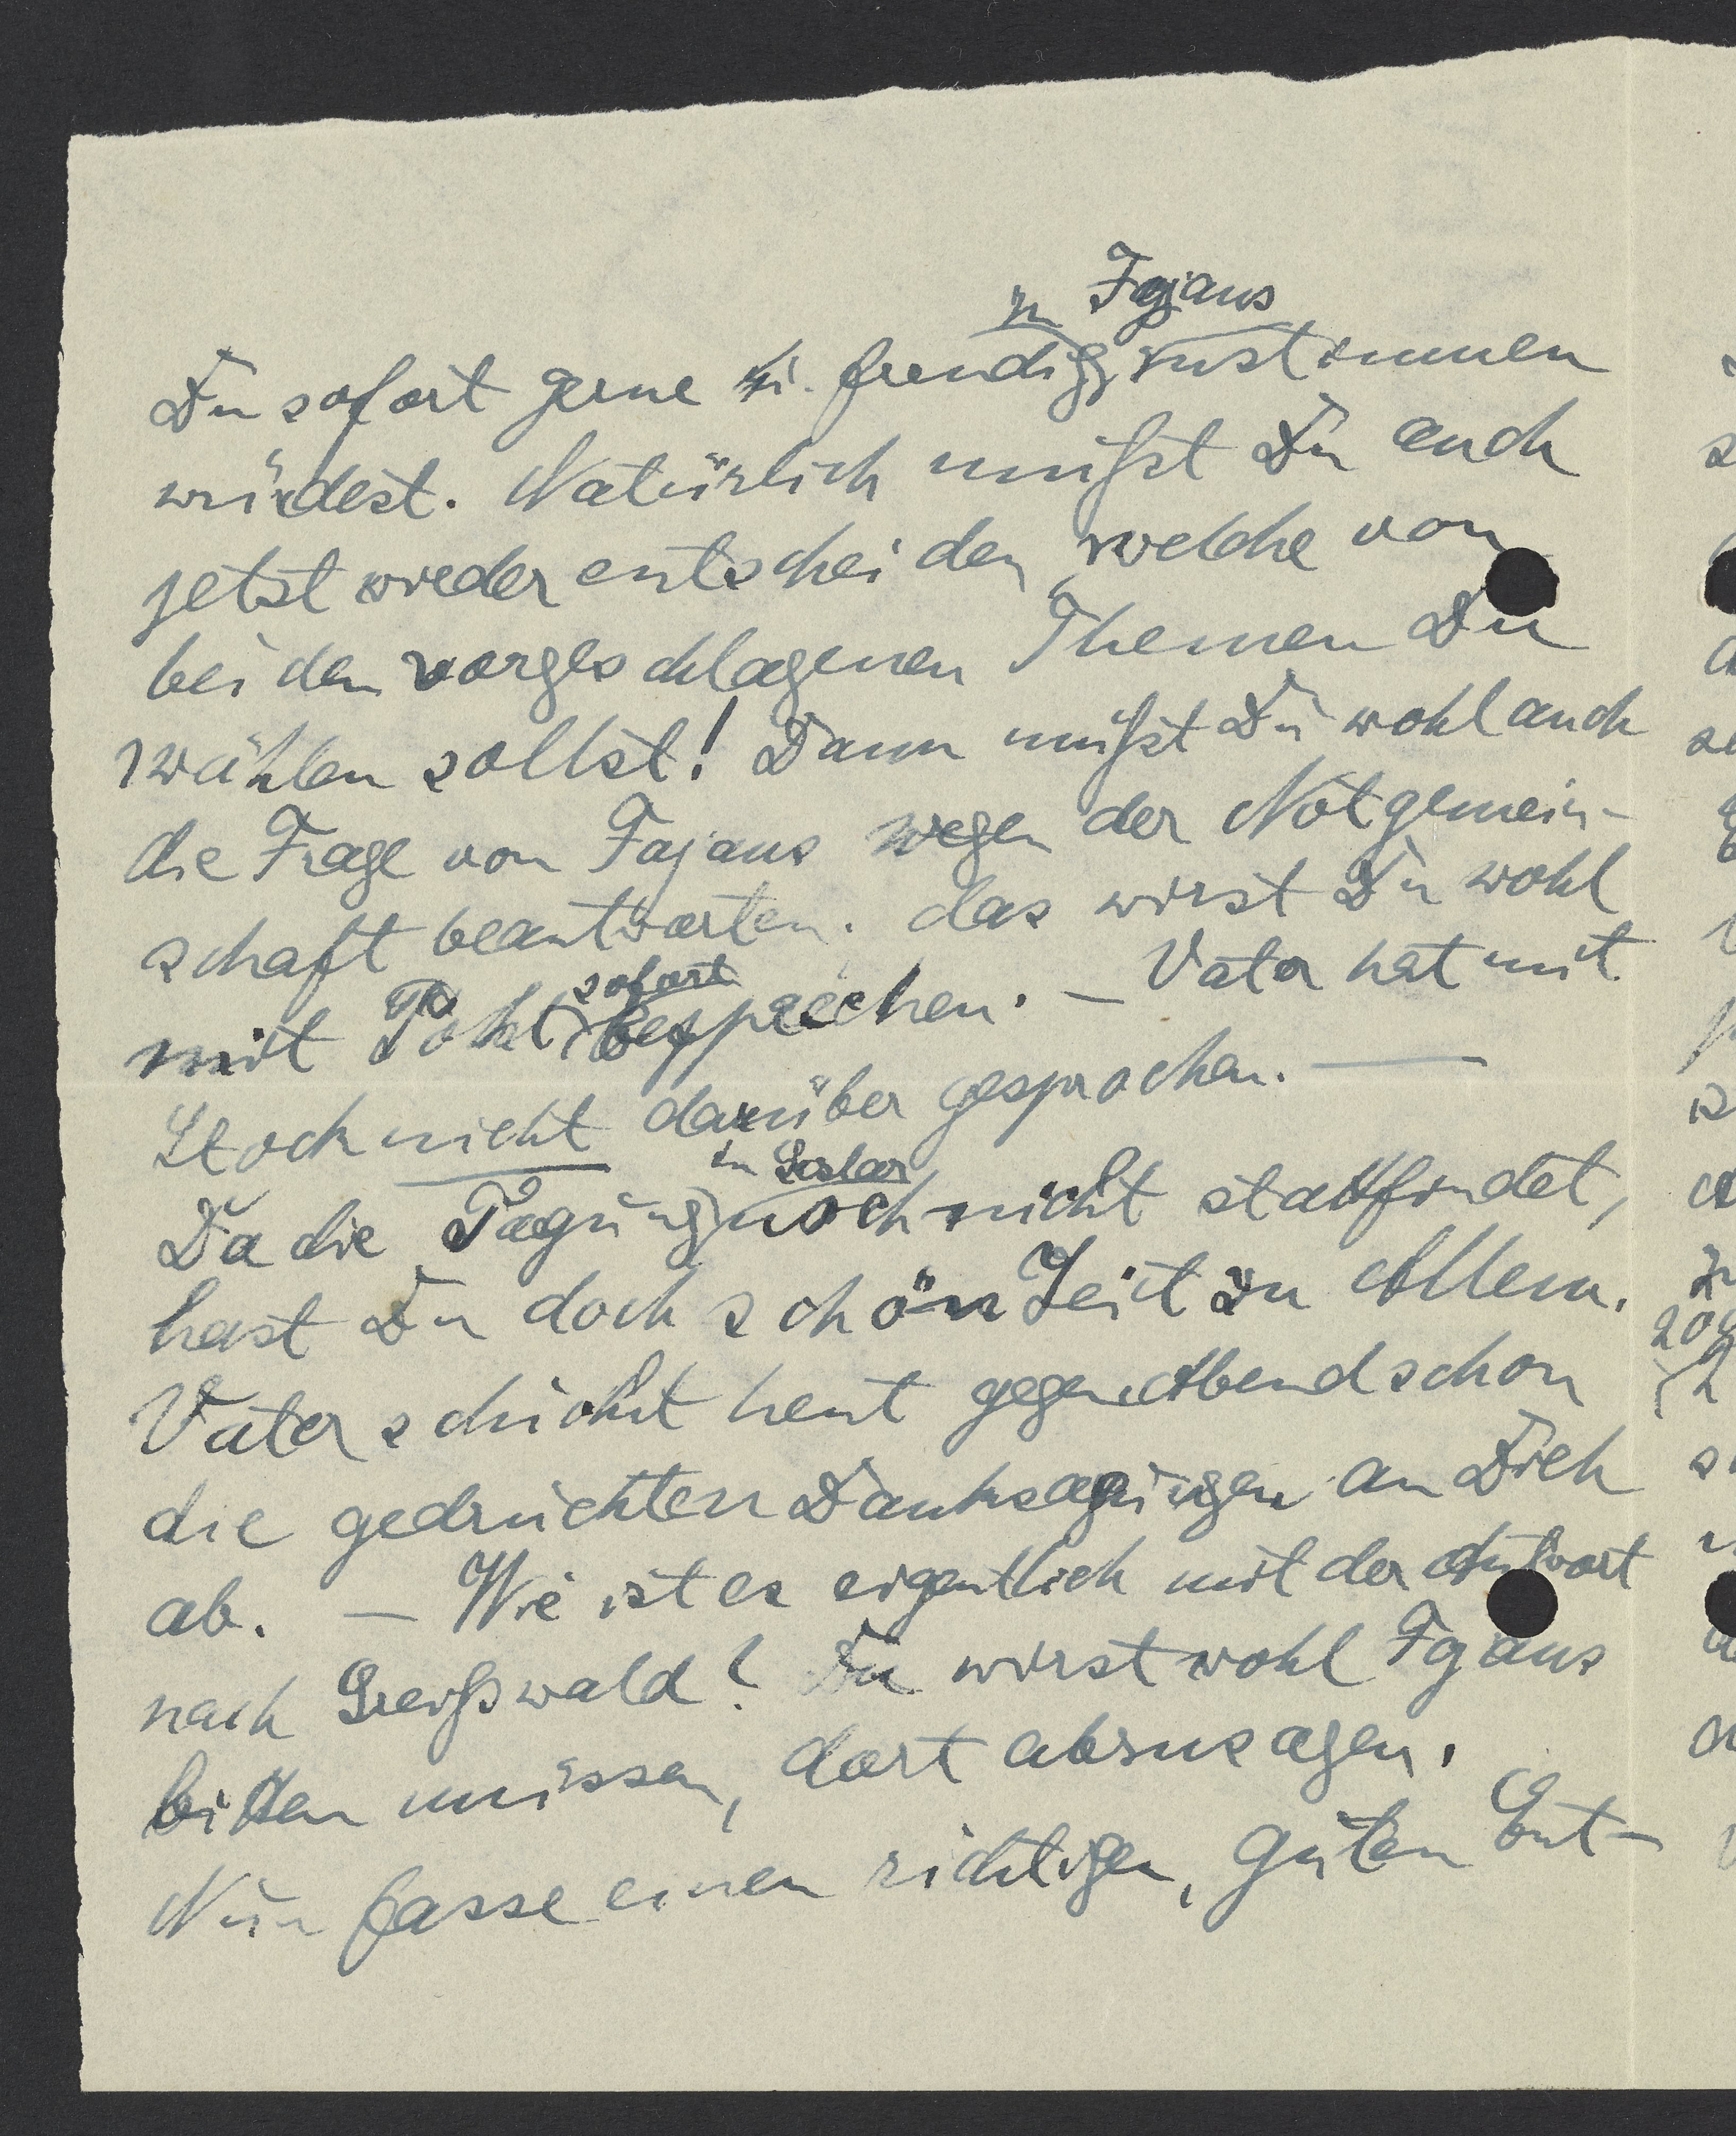 zu Fajans
Du sofort gerne u. freudig zustimmen
würdest. Natürlich mußt Du auch
jetzt wieder entscheiden, welche von
beiden vorgeschlagenen Themen Du
wählen sollst! Dann mußt Du wohl auch
die Frage von Fajans wegen der Notgemein-
schaft beantworten. das wirst Du wohl
sofort
mit Pohl besprechen. — Vater hat mit
Stock nicht darüber gesprochen. —
in Goslar
Da die Tagung noch nicht stattfindet,
hast Du doch schön Zeit zu Allem.
Vater schickt heut gegen Abend schon
die gedruckten Danksagungen an Dich
ab. — Wie ist es eigentlich mit der Antwort
nach Greifswald? Du wirst wohl Fajans
bitten müssen, dort abzusagen.
Nun fasse einen richtigen, guten Ent-